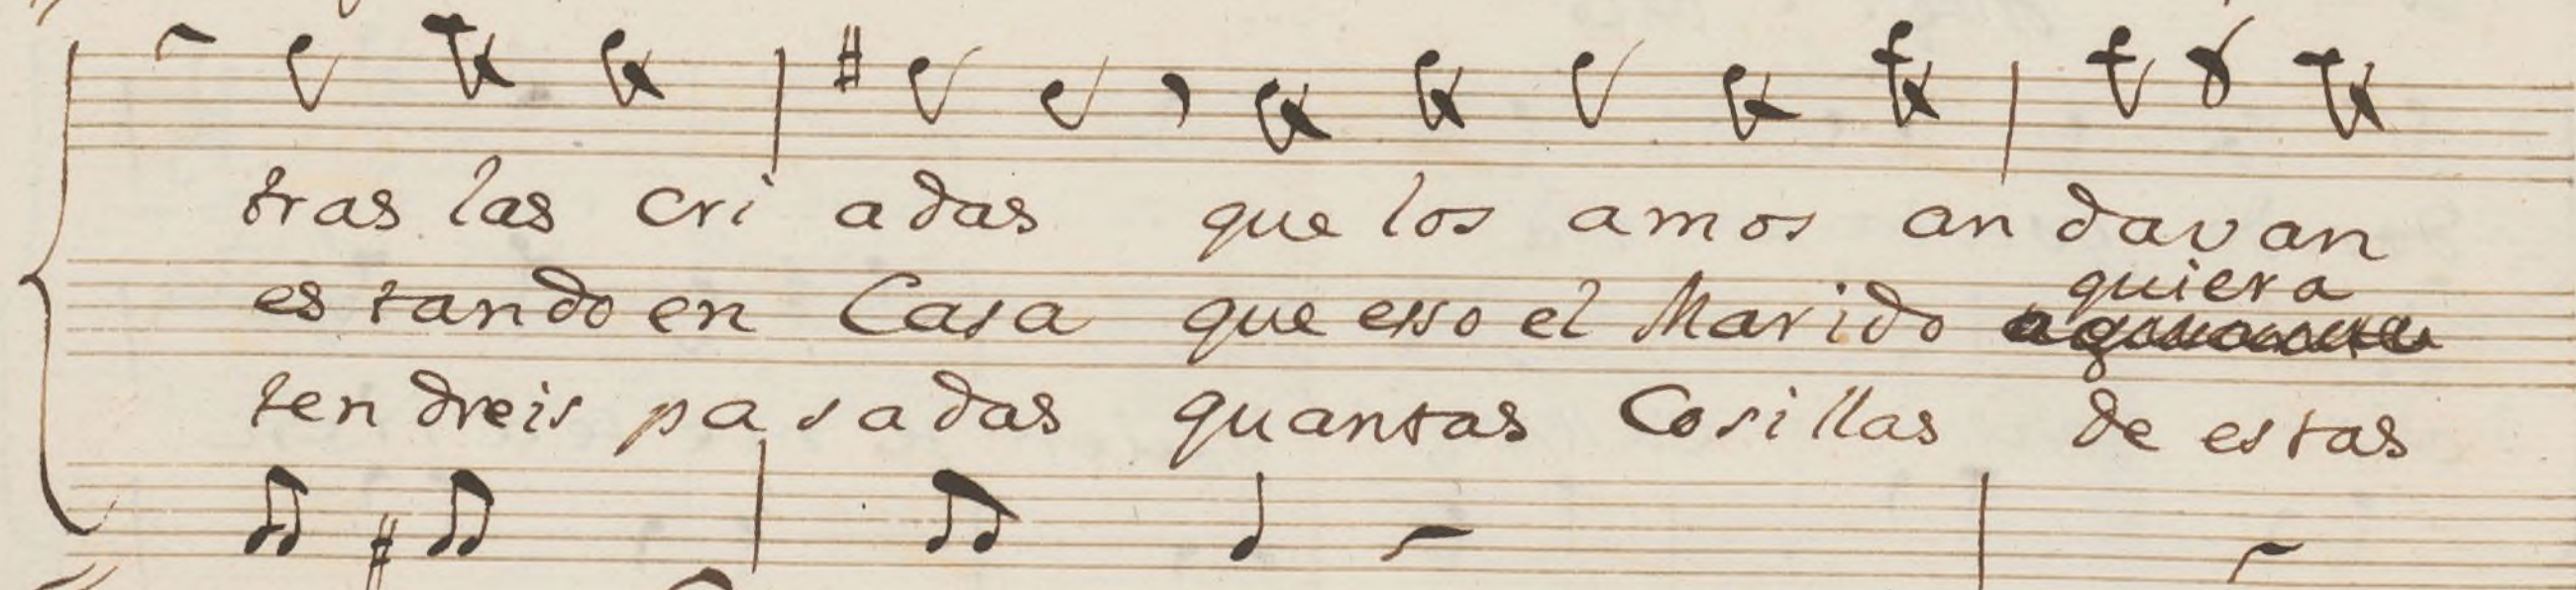 tras las cri adas que los amos an davan
quiera
es tando en Casa que esso el Marido
ten dreis pa sadas quantas Cosillas de estas